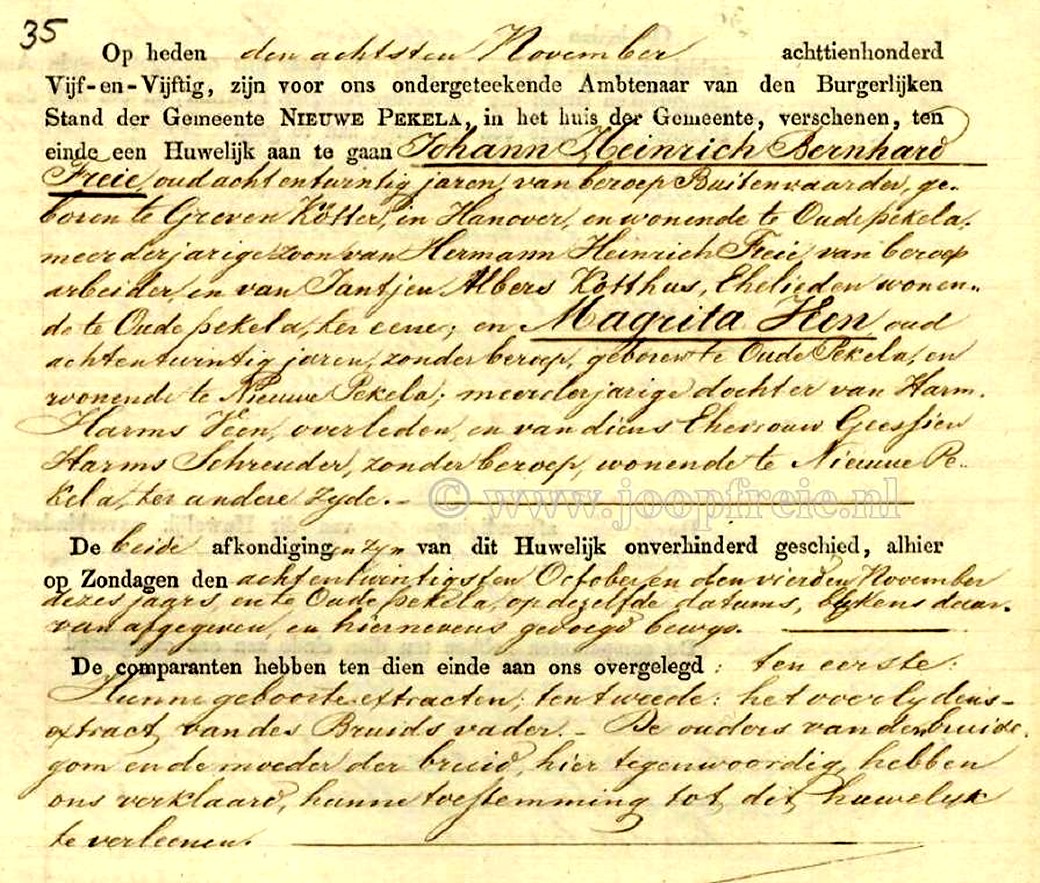 35
Op heden den achtsten November achttienhonderd
Vijf-en-Vijftig, zijn voor ons ondergeteekende Ambtenaar van den Burgerlijken
Stand der Gemeente NIEUWE PEKELA, in het huis der Gemeente, verschenen, ten
einde een Huwelijk aan te gaan Johann Heinrich Bernhard
Freie, oud achtentwintig jaren, van beroep Buitenvaarder, ge-
boren te Greven Kötter, in Hanover, en wonende te Oude pekela,
meerderjarige zoon van Hermann Heinrich Freie, van beroep
arbeider, en van Jantjen Albers Kotthus, Ehelieden wonen-
de te Oude pekela, ter eene; en Magrita Hen, oud
achtentwintig jaren, zonder beroep, geboren te Oude Pekela, en
wonende te Nieuwe Pekela; meerderjarige dochter van Harm
Harms Veen, overleden, en van diens Ehevrouw Geessien
Harms Schreuder, zonder beroep, wonende te Nieuwe Pe-
kela, ter andere zyde. -
© www.joopfreie.nl
De beide afkondigingen zyn van dit Huwelijk onverhinderd geschied, alhier
op Zondagen den achtentwintigsten October en den vierden November
dezes jaars, en te Oude pekela, op dezelfde datums, blykens daar-
van afgegeven, en hiernevens gevoegd bewys.
De comparanten hebben ten dien einde aan ons overgelegd : ten eerste:
Hunne geboorte extracten; ten tweede: het overlydens-
extract van des Bruids vader. - De ouders van den bruide-
gom en de moeder der bruid, hier tegenwoordig, hebben
ons verklaard, hunne toestemming tot dit huwelyk
te verleenen.